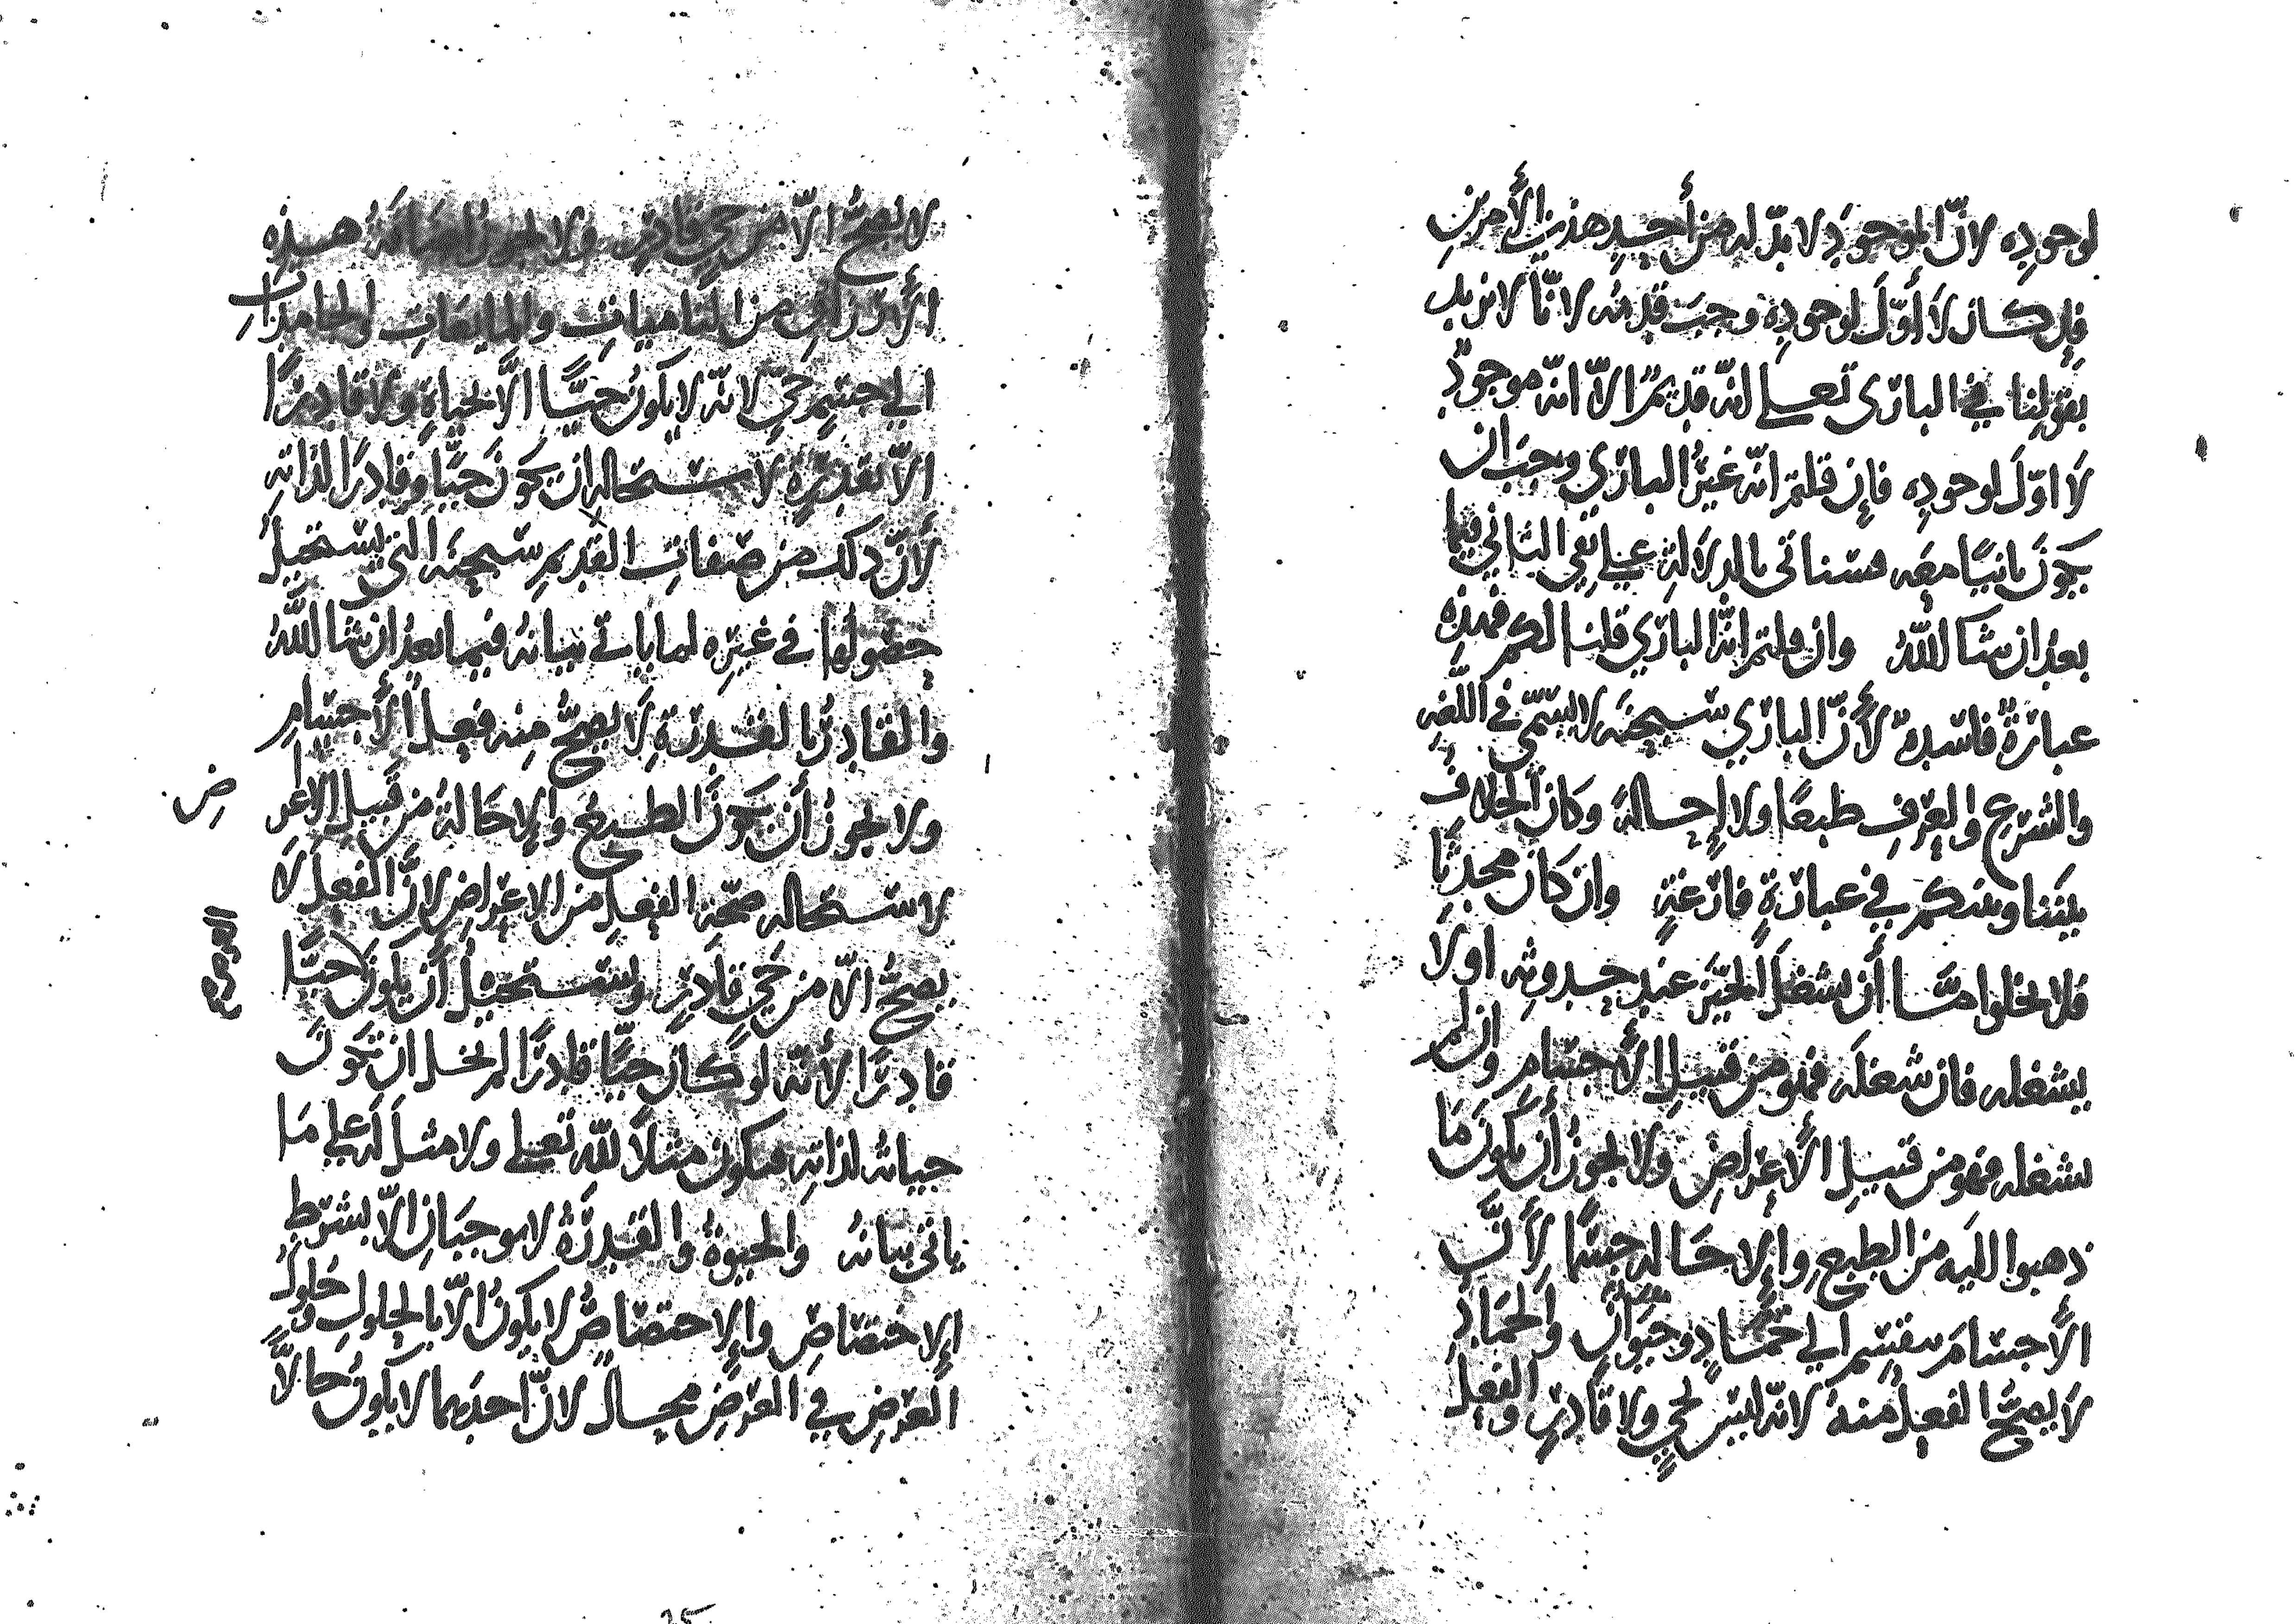 لوجوده لأنّ الموجود لا بدّ له من أحد هذين الأمرين
فإن كان لا أوّل لوجوده وجب قدمه لانّا لا نريد
بقولنا في الباري تعلى انّه قديمٌ الاّ انّه موجودٌ
لا اوّل لوجوده فإن قلتم انّه غيرُ الباري وجب ان
يكون ثانيًا معه وسناتى بالدلالة على نفى الثاني فيما
بعد ان شا اللّهُ وان قلتم انّه الباري قلنا لكم فهذه
عبارةٌ فاسدةٌ لأنّ الباري سبحنه لا يسمّى في اللغه
والشرع والعرف طبعًا ولا إحالةً وكان الخلافُ
بيننا وبينكم في عبارةٍ فارغةٍ وان كان محدثًا
فلا يخلوا امّا أن يشغل الحيّز عند حدوثه او لا
يشغله فان شغله فهو من قبيل الأجسام وان لم
يشغله فهو من قبيل الأعراض ولا يجوز أن يكون ما
ذهبوا اليه من الطبع والإحاله جسمًا لأنّ
الأجسام تنقسم الى جمادٍ وحيوان والجماد
لا يصحّ الفعل منه لانّه ليس بحيٍ ولا قادرٍ والفعل
لا يصحّ الاّ من حيٍ قادرٍ ولا يجوز اضافةُ هذه
الأرزاق من الناميات والمايعات والجامدات
الى جسمٍ حيٍّ لانّه لا يكون حيًّا الاّ بحياةٍ ولا قادرًا
الاّ بقدرةٍ لاستحاله ان يكون حيًّا وقادرًا لذاته
لأنّ ذلك من صفات القديم سبحنه التي يستحيلُ
حصولها في غيره لما ياتى بيانه فيما بعد ان شا اللّهُ
والقادرُ بالقدرة لا يصحُّ منه فعل الأجسام
ولا يجوز أن يكون الطبع والإحالةُ من قبيل الاعرا
ض
لاستحاله صحّة الفعل من الاعراض لانّ الفعل لا
يصحُّ الاّ من حيٍ قادرٍ ويستحيلُ أن يكون العرض حيًّا
قادرًا لأنّه لو كان حيًّا قادرًا لم يخل ان يكون
حياته لذاته فيكون مثلاً للّه تعلى ولا مثل له على ما
ياتى بيانه والحيوةُ والقدرةُ لا يوجبان الاّ بشرط
الإختصاص والإختصاصُ لا يكون الاّ بالحلول وحلولُ
العرض في العرض محالٌ لانّ احدهما لا يكون حالاًّ